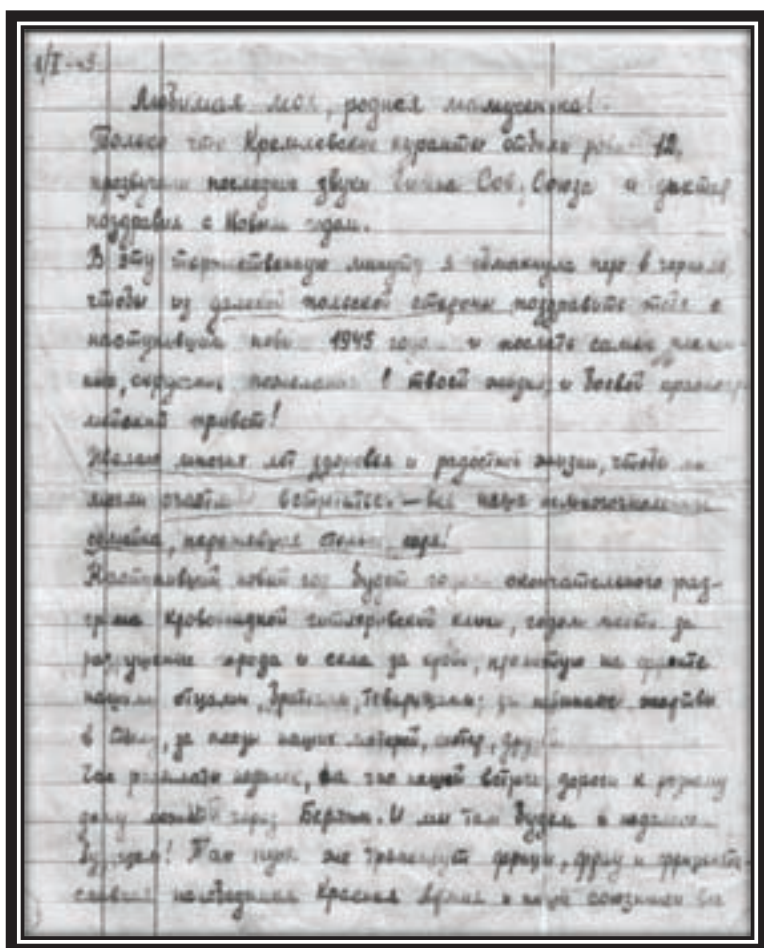 1/I-45
Любимая моя, родная мамусенька!
Только что Кремлевские куранты отбили ровно 12,
прозвучали последние звуки Гимна Сов. Союза и диктор
поздравил с Новым годом.
В эту торжественную минуту я обмакнула перо в чернила,
чтобы из далекой польской стороны поздравить тебя с
наступившим новым 1945 годом и послать самые
пожелания в твоей жизни, и боевой
привет!
Желаю многих лет здоровья и радостной жизни, чтобы мы
могли встретиться – вся наша немногочисленная
семейка, пережившая столько горя!
Наступивший новый год будет годом окончательного раз-
грома кровожадной гитлеровской клики, годом мести за
разрушенные города и села за кровь, пролитую на фронте
нашими отцами, братьями, товарищами; за жертвы
в тылу, за слезы наших матерей, сестер,
час недалек, час нашей встречи, дорога к родному
дому лежит через Берлин. И мы там будем в недалеком
будущем! Так пусть же трепещут фрицы,
Красная Армия и наши союзники